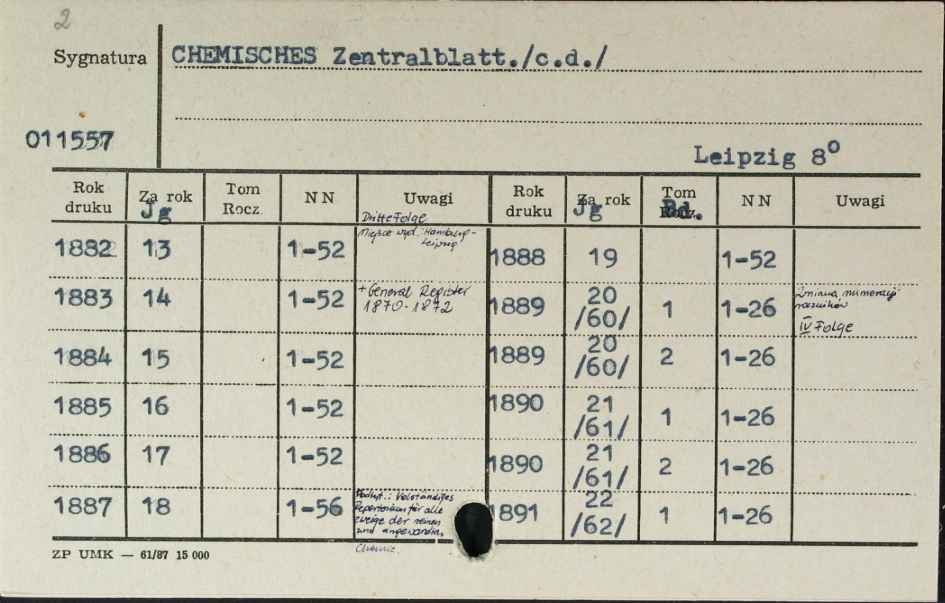 2
Sygnatura CHEMISCHES Zentralblatt./c.d./
011557
Leipzig 8°
Rok druku Za rok Jg Tom Rocz. NN Uwagi Rok druku Za rok Jg Tom Rocz. Bd. NN Uwagi
Dritte Folge
1882 13 1-52 Miejsce wyd. Hamburg-Leipzig 1888 19 1-52
1883 14 1-52 + General Register 1870-1872 1889 20 /60/ 1 1-26 Zmiana numeracji roczników IV Folge
1884 15 1-52 1889 20 /60/ 2 1-26
1885 16 1-52 1890 21 /61/ 1 1-26
1886 17 1-52 1890 21 /61/ 2 1-26
1887 18 1-56 Repertorium für alle Zweige der reinen und Chemie. 1891 22 /62/ 1 1-26
ZP UMK — 61/87 15 000